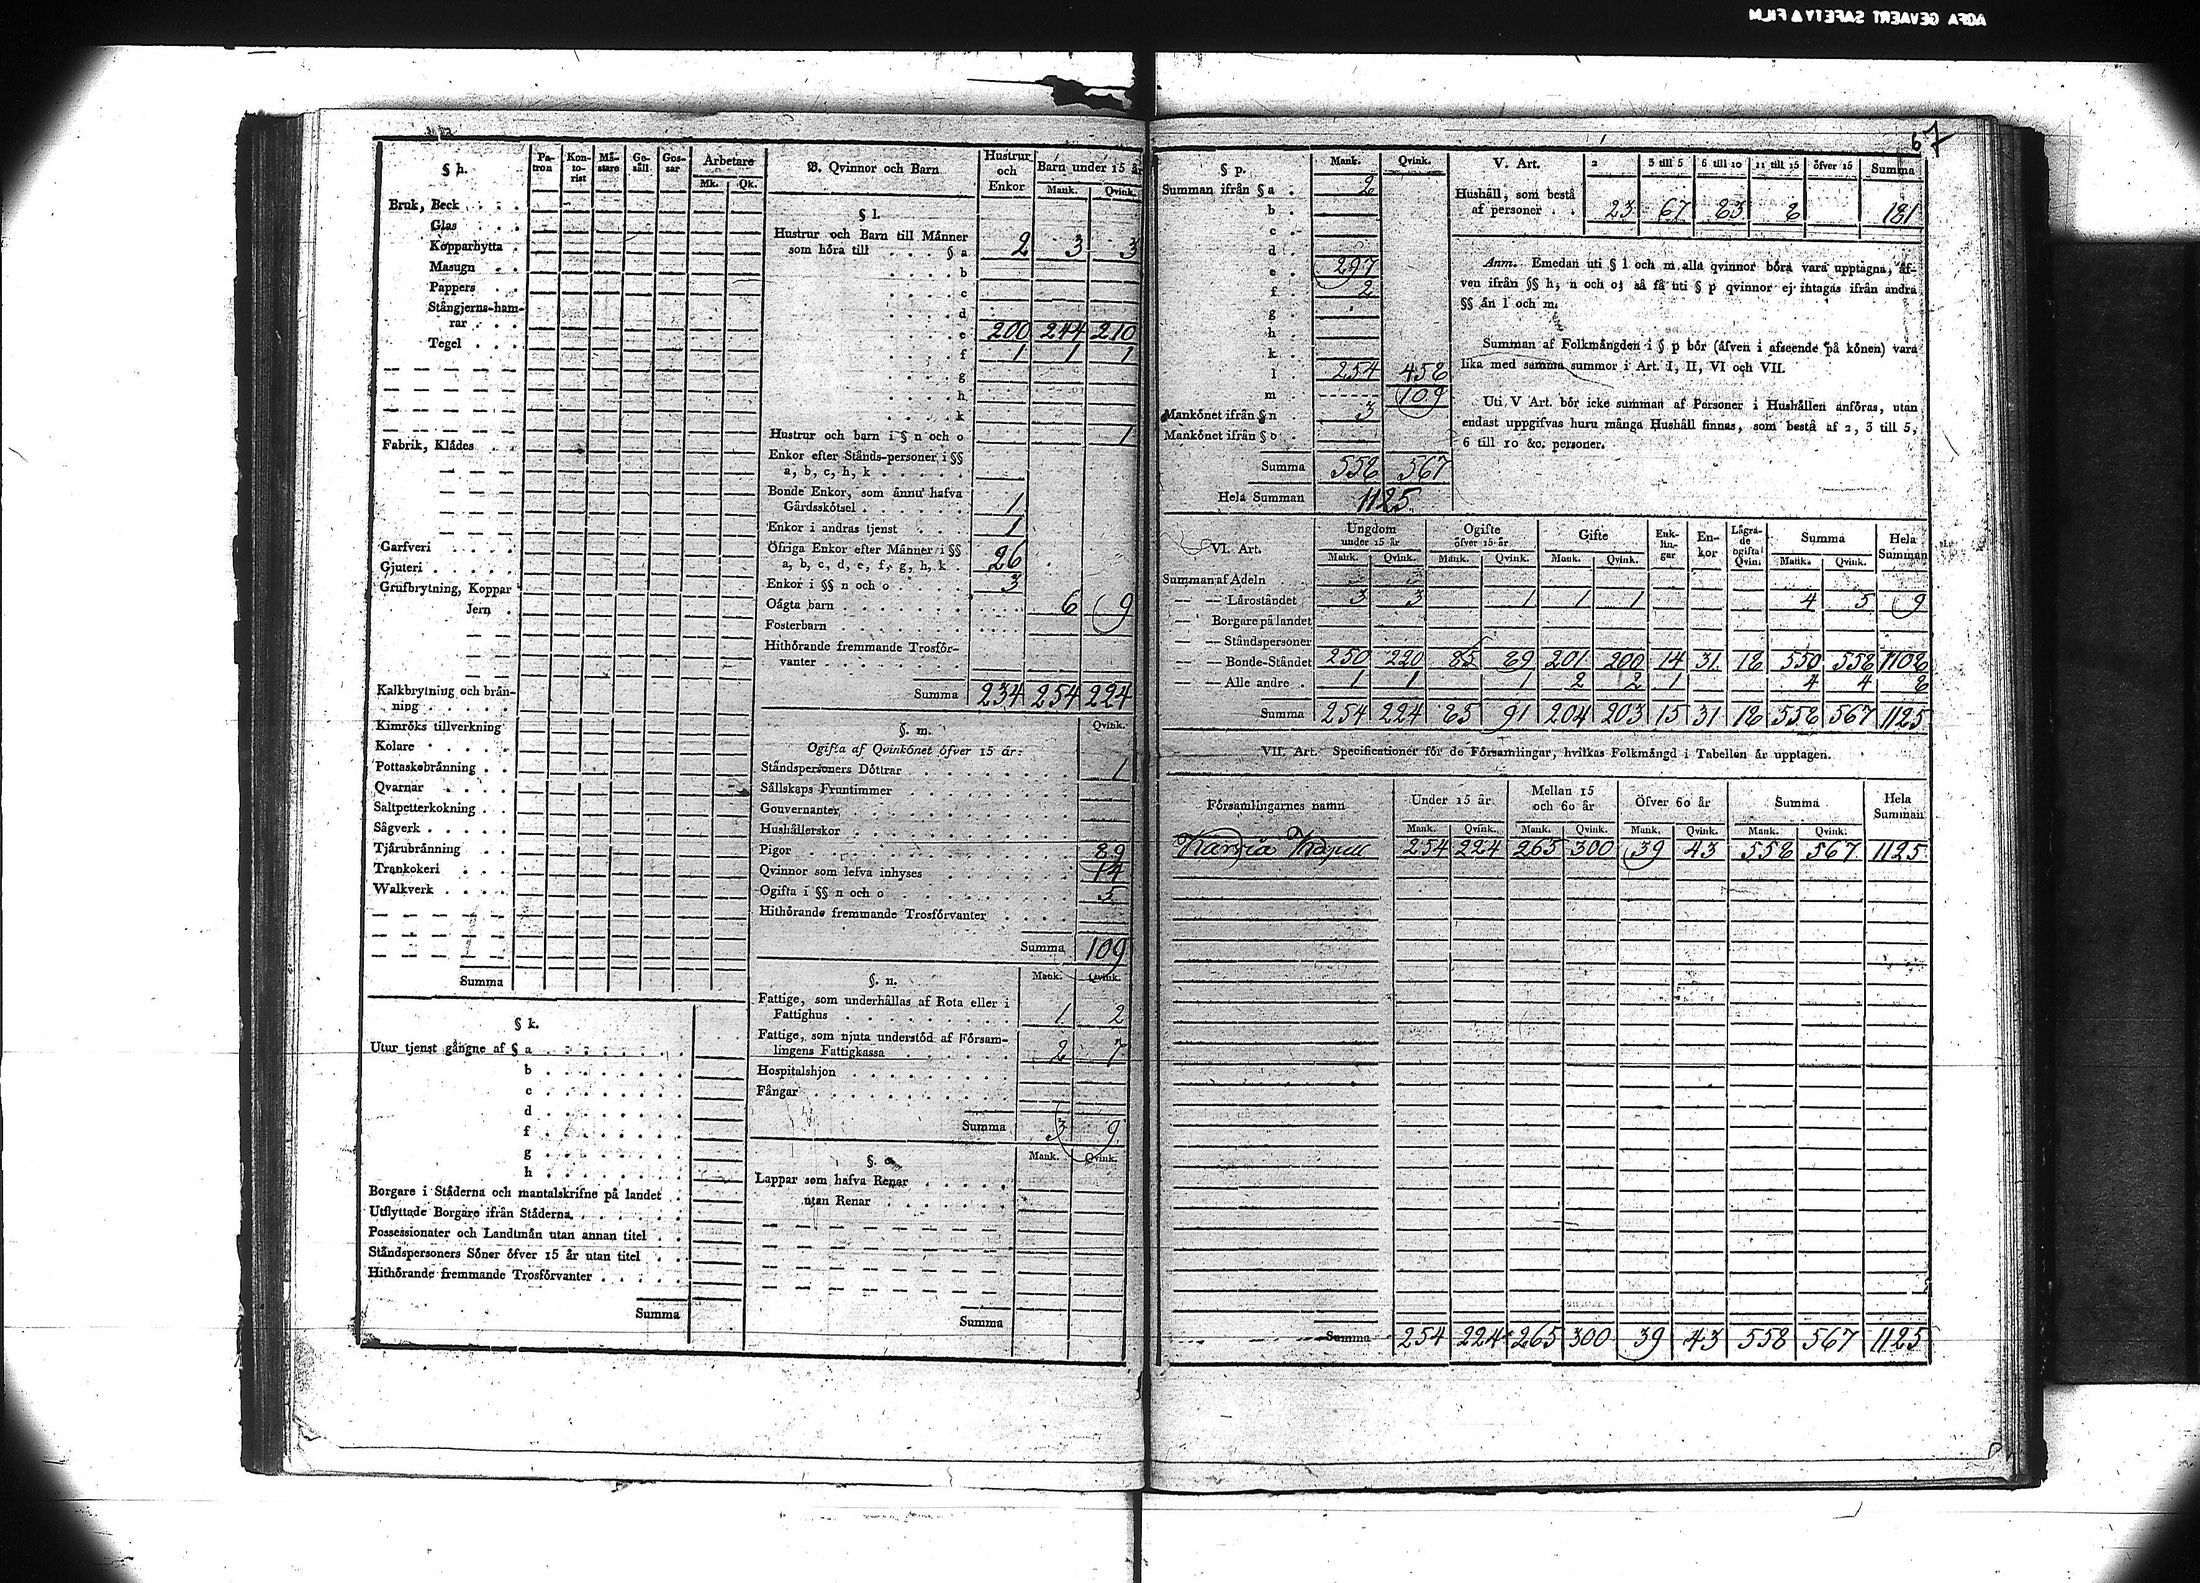 AGFA GEVAERT SAFETY FILM
67
§ h.
Pa-tron Kon-to-rist Mä-stare Ge-säll Gos-sar Arbetare
Mk. Qk.
Bruk, Beck
Glas
Kopparhytta
Masugn
Pappers
Stångjerns-ham-
rar
Tegel
Fabrik, Klädes
Garfveri
Gjuteri
Grufbrytning, Koppar
Jern
Kalkbrytning och brän-
ning
Kimröks tillverkning
Kolare
Pottaskebränning
Qvarnar
Saltpetterkokning
Sågverk
Tjärubränning
Trankokeri
Walkverk
Summa
§ k.
Utur tjenst gångne af § a
b
c
d
f
g
h
Borgare i Städerna och mantalskrifne på landet
Utflyttade Borgare ifrån Städerna
Possessionater och Landtmän utan annan titel
Ståndspersoners Söner öfver 15 år utan titel
Hithörande fremmande Trosförvanter
Summa
B. Qvinnor och Barn Hustrur och Enkor Barn under 15 år
Mank. Qvink.
§ l.
Hustrur och Barn till Männer
som höra till § a 2 3 3
b
c
d
e 200 244 210
f 1 1 1
g
h
k
Hustrur och barn i § n och o 1
Enkor efter Stånds-personer i §§
a, b, c, h, k
Bonde Enkor, som ännu hafva
Gårdsskötsel 1
Enkor i andras tjenst 1
Öfriga Enkor efter Männer i §§
a, b, c, d, e, f, g, h, k 26
Enkor i §§ n och o 3
Oägta barn 6 9
Fosterbarn
Hithörande fremmande Trosför-
vanter
Summa 234 254 224
§. m. Qvink.
Ogifta af Qvinkönet öfver 15 år:
Ståndspersoners Döttrar 1
Sällskaps Fruntimmer
Gouvernanter
Hushållerskor
Pigor 89
Qvinnor som lefva inhyses 14
Ogifta i §§ n och o 5
Hithörande fremmande Trosförvanter
Summa 109
§. n. Mank. Qvink.
Fattige, som underhållas af Rota eller i
Fattighus 1 2
Fattige, som njuta understöd af Försam-
lingens Fattigkassa 2 7
Hospitalshjon
Fångar
Summa 3 9
§. o. Mank. Qvink.
Lappar som hafva Renar
utan Renar
Summa
§ p. Mank. Qvink.
Summan ifrån § a 2
b
c
d
e 297
f 2
g
h
k
l 254 458
m 109
Mankönet ifrån § n 3
Mankönet ifrån § o
Summa 558 567
Hela Summan 1125
V. Art. 2 3 till 5 6 till 10 11 till 15 öfver 15 Summa
Hushåll, som bestå
af personer 23 67 83 8 181
Anm. Emedan uti § l och m alla qvinnor böra vara upptagna, äf-
ven ifrån §§ h, n och o; så få uti § p qvinnor ej intagas ifrån andra
§§ än l och m.
Summan af Folkmängden i § p bör (äfven i afseende på könen) vara
lika med samma summor i Art. I, II, VI och VII.
Uti V Art. bör icke summan af Personer i Hushållen anföras, utan
endast uppgifvas huru många Hushåll finnas, som bestå af 2, 3 till 5,
6 till 10 &c. personer.
VI. Art. Ungdom under 15 år Ogifte öfver 15 år Gifte Enk-lin-gar En-kor Lägra-de ogifta Qvin. Summa Hela Summan
Mank. Qvink. Mank. Qvink. Mank. Qvink. Mank. Qvink.
Summan af Adeln
— — Läroståndet 3 3 1 1 1 4 5 9
— Borgare på landet
— — Ståndspersoner
— — Bonde-Ståndet 250 220 85 89 201 200 14 31 18 550 558 1108
— — Alle andre 1 1 1 2 2 1 4 4 8
Summa 254 224 85 91 204 203 15 31 18 558 567 1125
VII. Art. Specificationer för de Församlingar, hvilkas Folkmängd i Tabellen är upptagen.
Församlingarnes namn Under 15 år Mellan 15 och 60 år Öfver 60 år Summa Hela Summan
Mank. Qvink. Mank. Qvink. Mank. Qvink. Mank. Qvink.
254 224 265 300 39 43 558 567 1125
Summa 254 224 265 300 39 43 558 567 1125